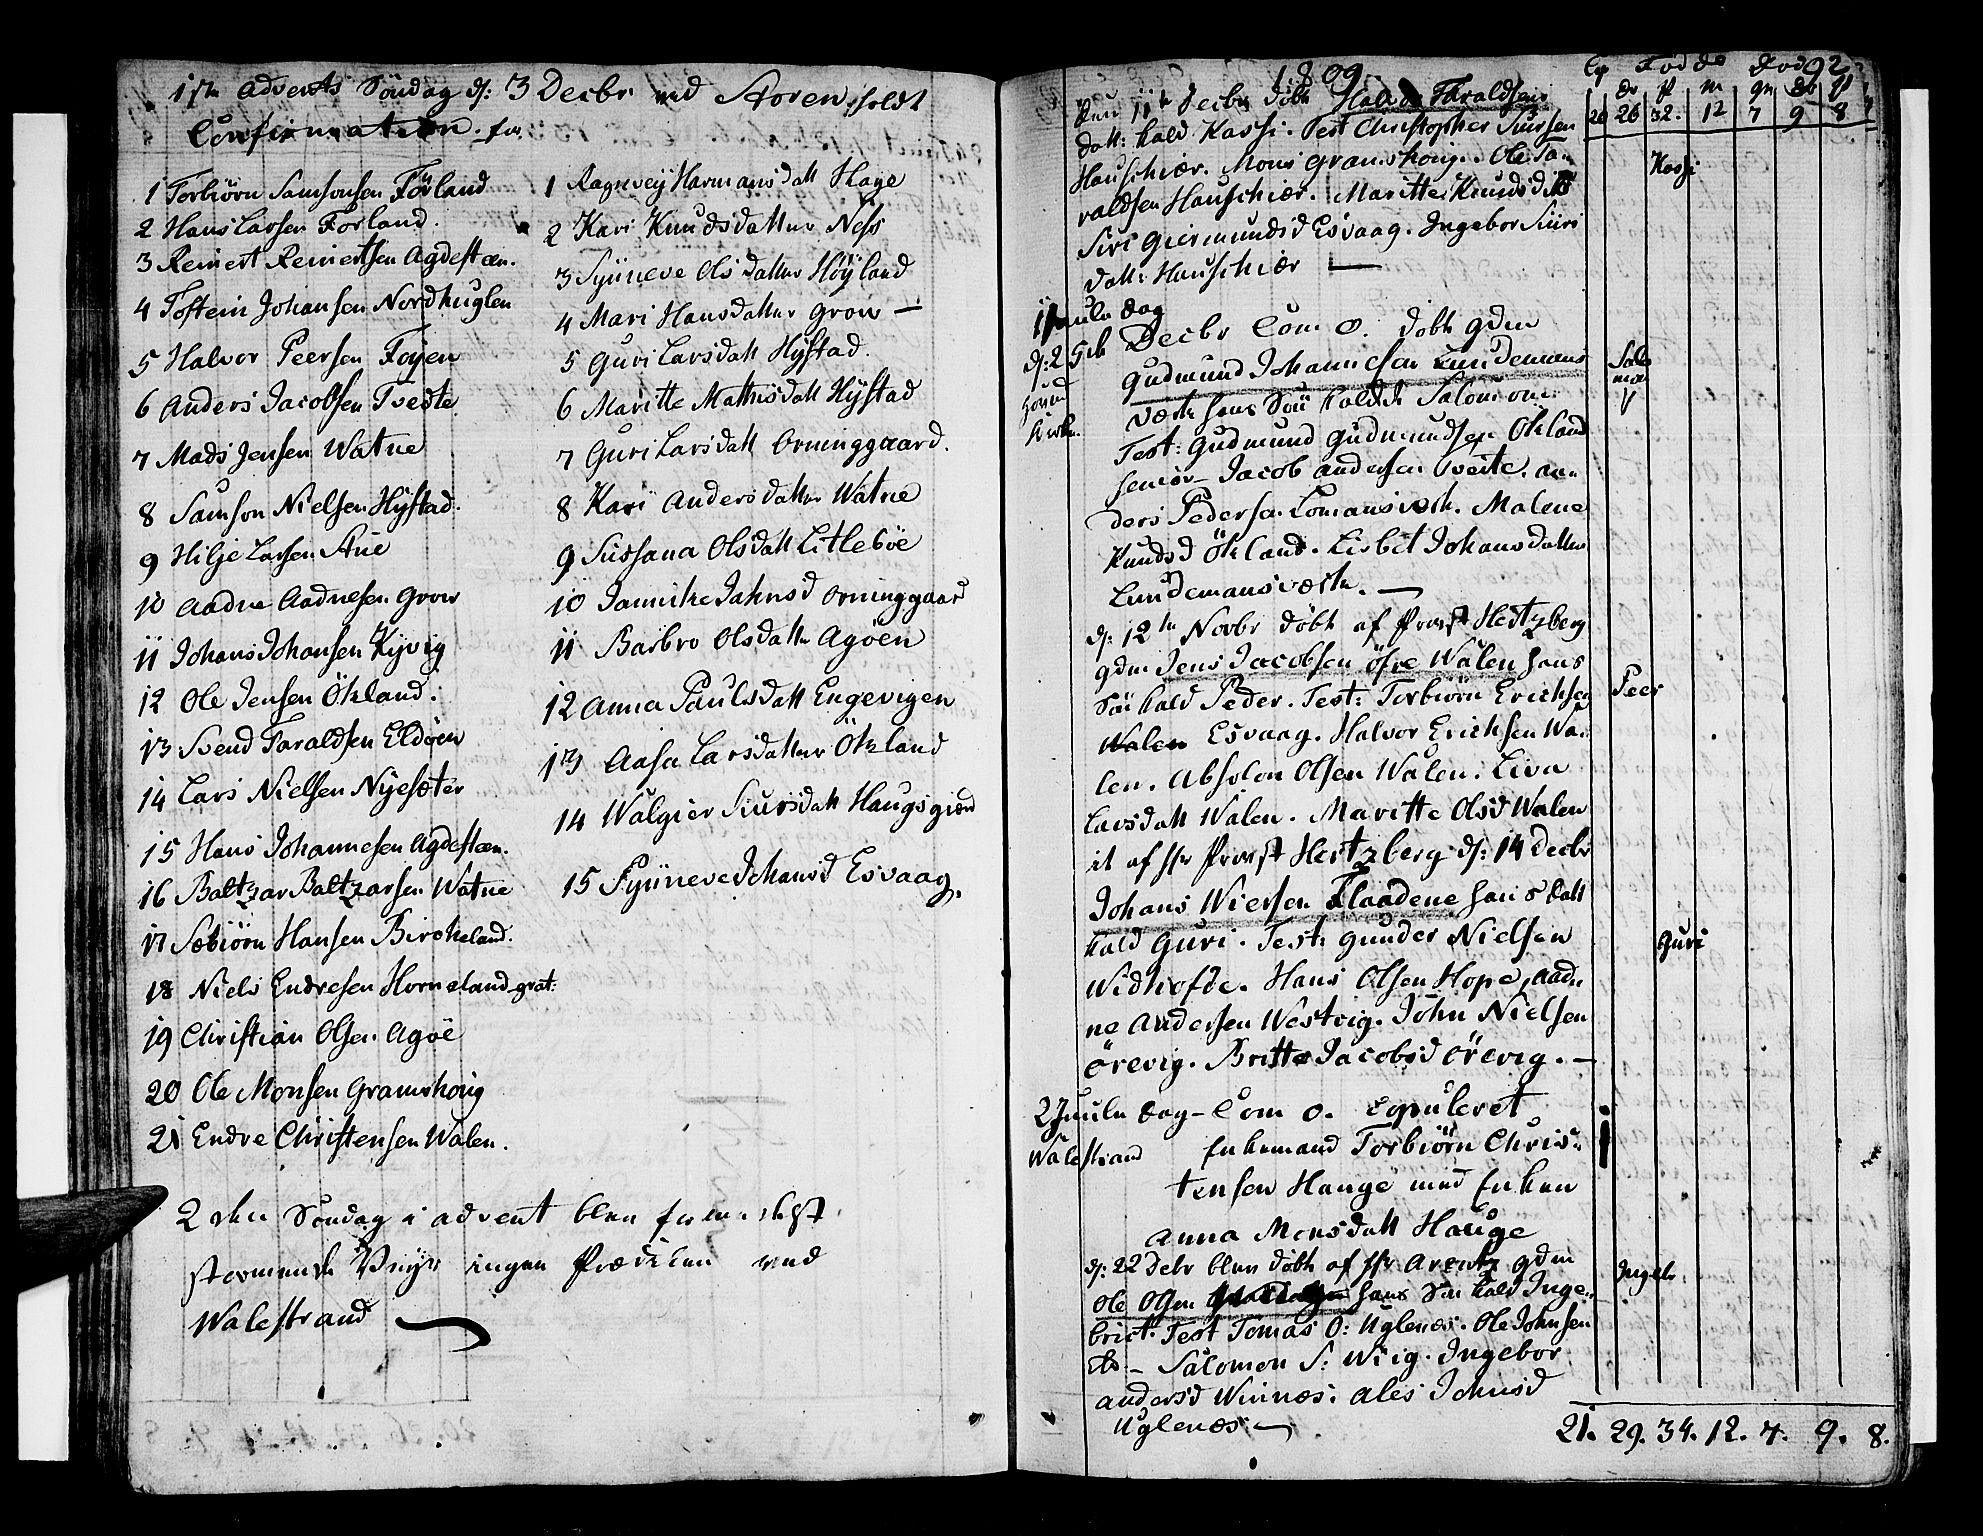 1ste Advents Söndag d: 3 Decbr ved Storen holdt
Confirmation for
1 Torbiörn Samsonsen Förland
2 Hans Larsen Förland.
3 Reinert Reinertsen Agdesteen.
4 Tostein Johansen Nordhuglen
5 Halvor Peersen Foyen
6 Anders Jacobsen Tvedte
7 Mads Jensen Watne
8 Samson Nielsen Hystad.
9 Hilje Larsen Aue
10 Aadne Aadnesen Grow
11 Johans Johansen Kyvig
12 Ole Jensen Ökland.
13 Svend Taraldsen Eldöen
14 Lars Nielsen Nyesæter
15 Hans Johannesen Agdesteen.
16 Baltzar Baltzarsen Watne
17 Sæbiörn Hansen Birckeland.
18 Niels Endresen Horneland grat:
19 Christian Olsen Agöe
20 Ole Monsen Gramshoug
21 Endre Christensen Walen.
1 Ragnvey Harmansdatt Hage
2 Kari Knudsdatter Ness
3 Synneve Olsdatter Höyland
4 Mari Hansdatter Grow —
5 Guri Larsdatt Hystad.
6 Maritte Mathisdatt Hystad
7 Guri Larsdatt Orninggaard.
8 Kari Andersdatter Watne
9 Sussana Olsdatt Litleböe
10 Jannike Jahnsd Orninggaard
11 Barbro Olsdatter Agöen
12 Anna Paulsdatt Engevigen
13 Aasa Larsdatter Ökland
14 Walgier Siursdatt Haugsgierd
15 Synneve Johansd Esvaag.
2den Söndag i advent blev formedelst
stormende Veyr ingen Prædiken ved
Walestrand
1809.
Cop Födde Döde 92
20 26 32. 12 7 9 8
Den 11te Decbr döbt Taraldsens
datt: kald Kassi. Test Christopher Siursen
Hauschier. Mons Gramshoug. Ole Ta-
raldsen Hauschier. Maritte Knudsd
Siri Giermundsd Esvaag. Ingebor Siurs
datt: Hauschier —
Kassi
1 Juule Dag
d: 25de Decbr Com 0. döbt gdm
Gudmund Johannesen Lundemans
værk hans Sön kaldet Salomon.
Test: Gudmund Gudmundsen Ökland
senior – Jacob Andersen Tveite. An-
ders Pedersen Lomansværk. Malene
Knudsd Ökland. Lisbet Johansdatter
Lundemansværk. —
d: 12te Novbr döbt af Provst Hertzberg
gdm Jens Jacobsen Öfre Walen hans
Sön kald Peder. Test: Torbiörn Erichsen
Peer
Walen Esvaag. Halvor Erichsen Wa-
len. Absolon Olsen Walen. Liva
Larsdatt Walen. Maritte Olsd Walen
it af Hr Provst Hertzberg d: 14 Decbr
Johans Wiersen Flaadene hans datt
kald Guri. Test: Gunder Nielsen
Guri
Widhofde. Hans Olsen Hope, Aad-
ne Andersen Westvig. John Nielsen
Örevig. Britte Jacobsd Örevig. —
2 Juule Dag – Com 0. Copuleret
Walestrand Enkemand Torbiörn Chris-
tensen Hauge med Enken
Anna Monsdatt Hauge
d: 22 Decbr blev döbt af Hr Arentz gdm
Ole Olsen hans Sön kald Inge-
brict. Test Tomas O: Uglenæs. Ole Johnsen
Salomon S: Wiig. Ingebor
Andersd Winnæs. Ales Johnsd
Uglenæs. —
21. 29. 34. 12. 7. 9. 8.